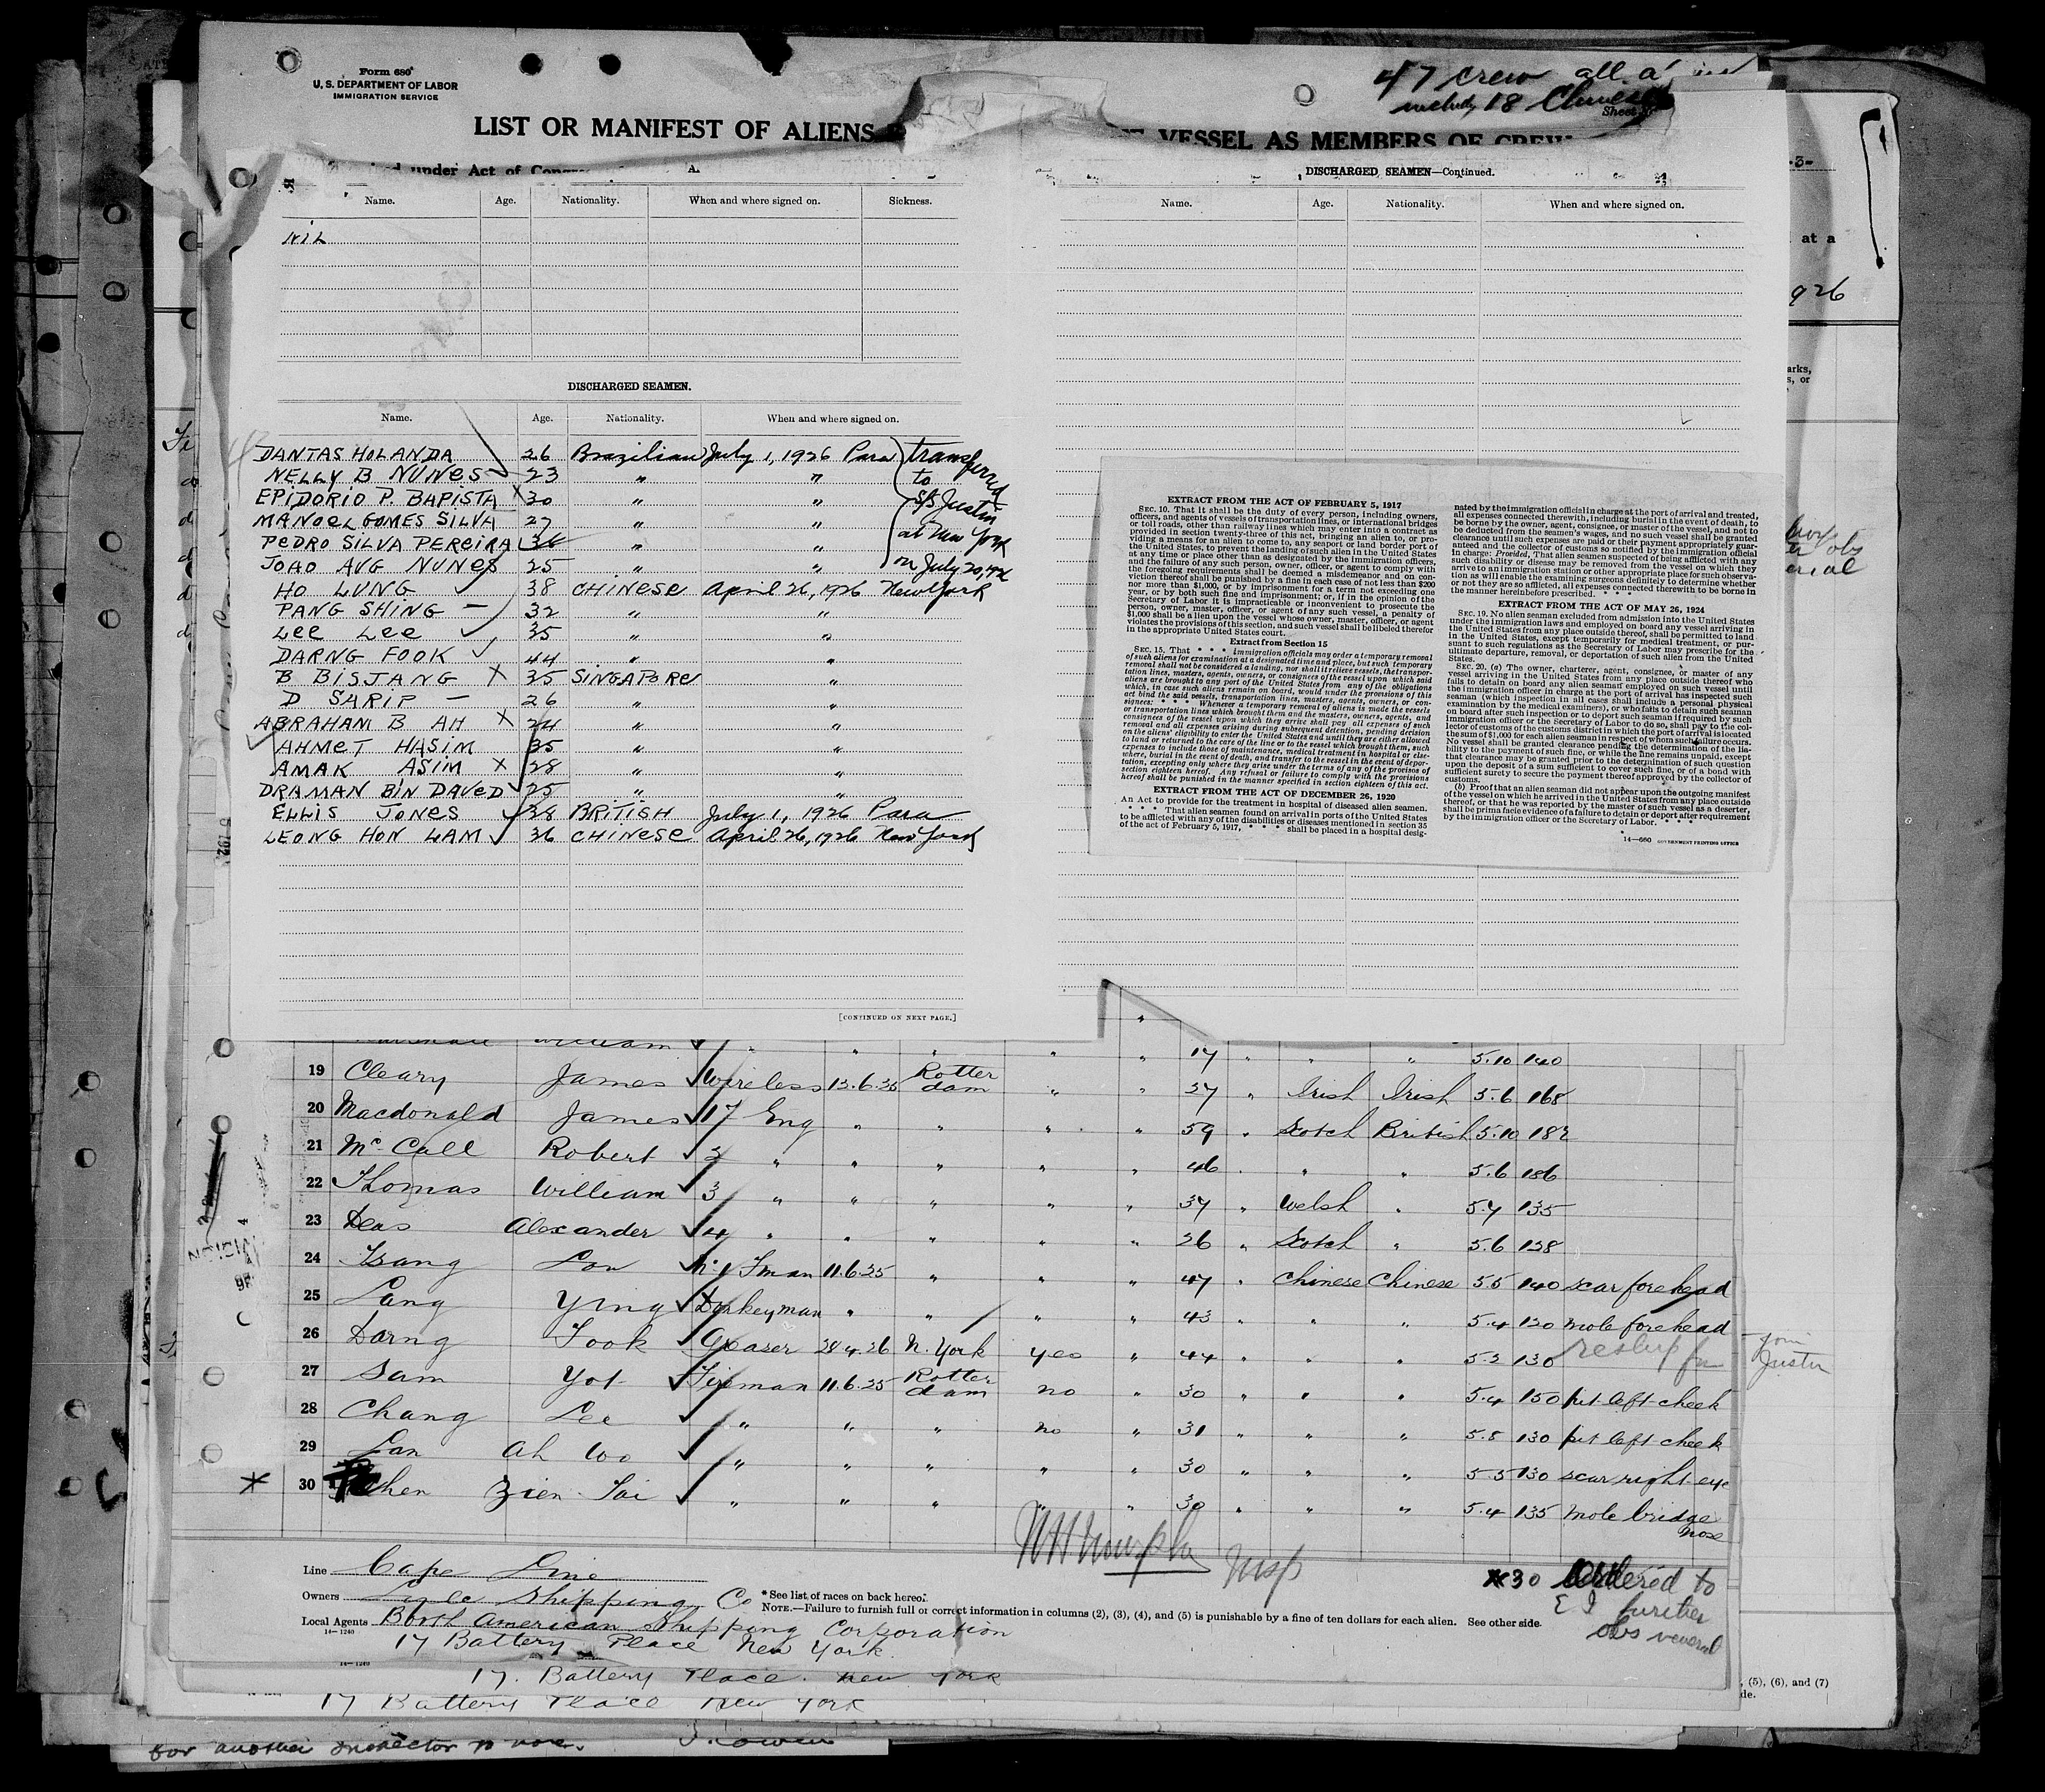 Form 680
U. S. DEPARTMENT OF LABOR
IMMIGRATION SERVICE
47 crew all
18 Chinese
Sheet
LIST OR MANIFEST OF ALIENS
VESSEL AS MEMBERS OF CREW
under Act of
Name. Age. Nationality. When and where signed on. Sickness.
NiL
DISCHARGED SEAMEN.
Name. Age. Nationality. When and where signed on.
DANTAS HOLANDA 26 Brazilian July 1, 1926 Para transferred
NELLY B NUNES 23 " " to
EPIDORIO P. BAPISTA X 30 " " S/S Justin
MANOEL GOMES SILVA 27 " "
PEDRO SILVA PEREIRA 36 " " at New York
JOAO AUG NUNES 25 " " on July 20, 1926
HO LUNG 38 CHINESE April 26, 1926 New York
PANG SHING — 32 " "
LEE LEE ✓ 35 " "
DARNG FOOK ✓ 44 " "
B BISJANG X 35 SINGAPORE "
D SARIP — 26 " "
ABRAHAM B AH X 24 " "
✓ AHMET HASIM 35 " "
AMAK ASIM X 28 " "
DRAMAN BIN DAVED ✓ 25 " "
ELLIS JONES ✓ 28 BRITISH July 1, 1926 Para
LEONG HON LAM ✓ 36 CHINESE April 26, 1926 New York
[CONTINUED ON NEXT PAGE.]
DISCHARGED SEAMEN—Continued.
Name. Age. Nationality. When and where signed on.
EXTRACT FROM THE ACT OF FEBRUARY 5, 1917
SEC. 10. That it shall be the duty of every person, including owners,
officers, and agents of vessels of transportation lines, or international bridges
or toll roads, other than railway lines which may enter into a contract as
provided in section twenty-three of this act, bringing an alien to, or pro-
viding a means for an alien to come to, any seaport or land border port of
the United States, to prevent the landing of such alien in the United States
at any time or place other than as designated by the immigration officers,
and the failure of any such person, owner, officer, or agent to comply with
the foregoing requirements shall be deemed a misdemeanor and on con-
viction thereof shall be punished by a fine in each case of not less than $200
nor more than $1,000, or by imprisonment for a term not exceeding one
year, or by both such fine and imprisonment; or, if in the opinion of the
Secretary of Labor it is impracticable or inconvenient to prosecute the
person, owner, master, officer, or agent of any such vessel, a penalty of
$1,000 shall be a lien upon the vessel whose owner, master, officer, or agent
violates the provisions of this section, and such vessel shall be libeled therefor
in the appropriate United States court.
Extract from Section 15
SEC. 15. That * * * immigration officials may order a temporary removal
of such aliens for examination at a designated time and place, but such temporary
removal shall not be considered a landing, nor shall it relieve vessels, the transpor-
tation lines, masters, agents, owners, or consignees of the vessel upon which said
aliens are brought to any port of the United States from any of the obligations
which, in case such aliens remain on board, would under the provisions of this
act bind the said vessels, transportation lines, masters, agents, owners, or con-
signees: * * * Whenever a temporary removal of aliens is made the vessels
or transportation lines which brought them and the masters, owners, agents, and
consignees of the vessel upon which they arrive shall pay all expenses of such
removal and all expenses arising during subsequent detention, pending decision
on the aliens' eligibility to enter the United States and until they are either allowed
to land or returned to the care of the line or to the vessel which brought them, such
expenses to include those of maintenance, medical treatment in hospital or else-
where, burial in the event of death, and transfer to the vessel in the event of depor-
tation, excepting only where they arise under the terms of any of the provisos of
section eighteen hereof. Any refusal or failure to comply with the provisions
hereof shall be punished in the manner specified in section eighteen of this act.
EXTRACT FROM THE ACT OF DECEMBER 26, 1920
An Act to provide for the treatment in hospital of diseased alien seamen.
* * * * That alien seamen found on arrival in ports of the United States
to be afflicted with any of the disabilities or diseases mentioned in section 35
of the act of February 5, 1917, * * * * shall be placed in a hospital desig-
nated by the immigration official in charge at the port of arrival and treated,
all expenses connected therewith, including burial in the event of death, to
be borne by the owner, agent, consignee, or master of the vessel, and not to
be deducted from the seamen's wages, and no such vessel shall be granted
clearance until such expenses are paid or their payment appropriately guar-
anteed and the collector of customs so notified by the immigration official
in charge: Provided, That alien seamen suspected of being afflicted with any
such disability or disease may be removed from the vessel on which they
arrive to an immigration station or other appropriate place for such observa-
tion as will enable the examining surgeons definitely to determine whether
or not they are so afflicted, all expenses connected therewith to be borne in
the manner hereinbefore prescribed. * * *
EXTRACT FROM THE ACT OF MAY 26, 1924
SEC. 19. No alien seaman excluded from admission into the United States
under the immigration laws and employed on board any vessel arriving in
the United States from any place outside thereof, shall be permitted to land
in the United States, except temporarily for medical treatment, or pur-
suant to such regulations as the Secretary of Labor may prescribe for the
ultimate departure, removal, or deportation of such alien from the United
States.
SEC. 20. (a) The owner, charterer, agent, consignee, or master of any
vessel arriving in the United States from any place outside thereof who
fails to detain on board any alien seaman employed on such vessel until
the immigration officer in charge at the port of arrival has inspected such
seaman (which inspection in all cases shall include a personal physical
examination by the medical examiners), or who fails to detain such seaman
on board after such inspection or to deport such seaman if required by such
immigration officer or the Secretary of Labor to do so, shall pay to the col-
lector of customs of the customs district in which the port of arrival is located
the sum of $1,000 for each alien seaman in respect of whom such failure occurs.
No vessel shall be granted clearance pending the determination of the lia-
bility to the payment of such fine, or while the fine remains unpaid, except
that clearance may be granted prior to the determination of such question
upon the deposit of a sum sufficient to cover such fine, or of a bond with
sufficient surety to secure the payment thereof approved by the collector of
customs.
(b) Proof that an alien seaman did not appear upon the outgoing manifest
of the vessel on which he arrived in the United States from any place outside
thereof, or that he was reported by the master of such vessel as a deserter,
shall be prima facie evidence of a failure to detain or deport after requirement
by the immigration officer or the Secretary of Labor. * * * *
14—680 GOVERNMENT PRINTING OFFICE
-3-
at a
926
arks,
s, or
William ✓ " " " " " 17 " " " 5.10 140
19 Cleary James ✓ Wireless 12.6.25 Rotterdam " " 27 " Irish Irish 5.6 168
20 Macdonald James ✓ 1st Eng " " " " 59 " Scotch British 5.10 182
21 McCall Robert ✓ 2 " " " " " 46 " " " 5.6 186
22 Thomas William ✓ 3 " " " " " 37 " Welsh " 5.7 135
23 Deas Alexander ✓ 4 " " " " " 26 " Scotch " 5.6 138
24 Tsang Lon ✓ No 1 Fman 11.6.25 " " " 47 " Chinese Chinese 5.5 140 scar forehead
25 Lang Ying ✓ Donkeyman " " " " 43 " " " 5.4 120 mole forehead
26 Darng Fook ✓ Greaser 28.4.26 N. York yes " 44 " " " 5.2 130
Justin
27 Sam Yot ✓ Fireman 11.6.25 Rotterdam no " 30 " " " 5.4 150 pit left cheek
28 Chang Lee ✓ " " " no " 31 " " " 5.8 130 pit left cheek
29 Lan Ah Woo ✓ " " " " " 30 " " " 5.5 130 scar right eye
* 30 Chen Zien Tai ✓ " " " " " 30 " " " 5.4 135 mole bridge nose
Insp
Line Cape Line
Owners Lyle Shipping Co
Local Agents North American Shipping Corporation
14—1240
17 Battery Place New York
* See list of races on back hereof.
NOTE.—Failure to furnish full or correct information in columns (2), (3), (4), and (5) is punishable by a fine of ten dollars for each alien. See other side.
*30 ordered to
E I further
obs venereal
17. Battery Place. New York
17 Battery Place New York
, (5), (6), and (7)
de.
for another inspector